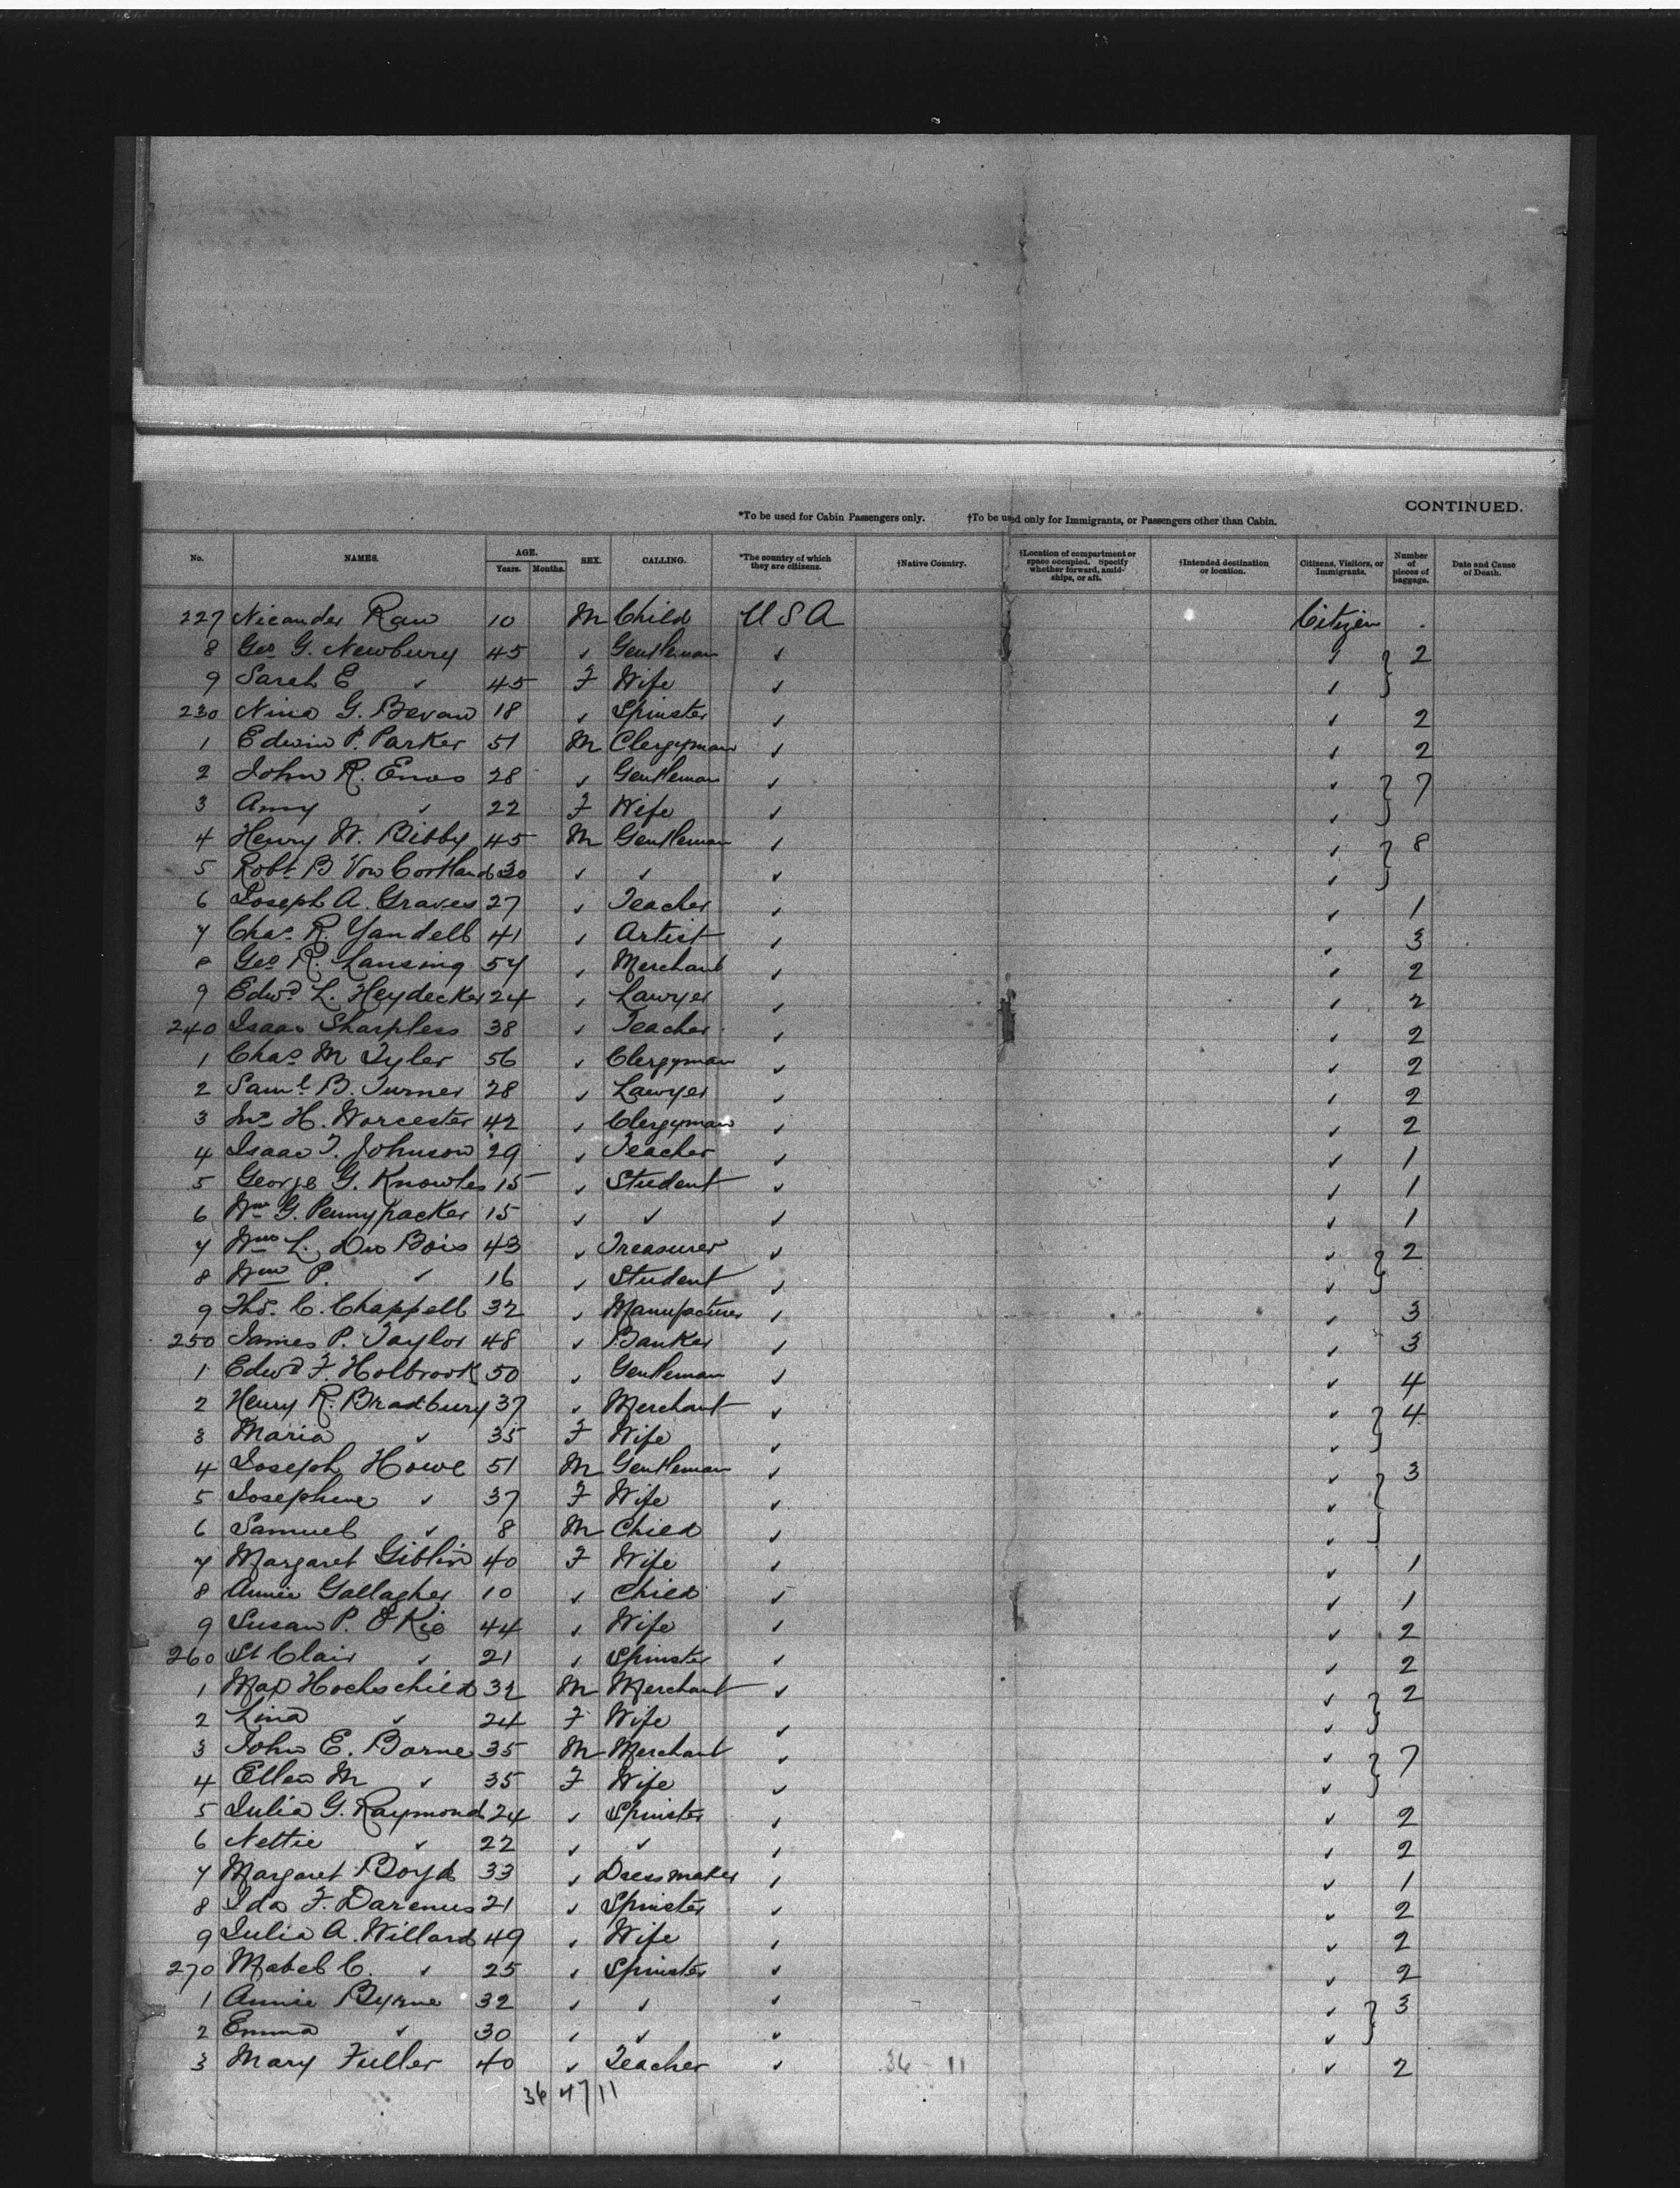 CONTINUED.
*To be used for Cabin Passengers only. †To be used only for Immigrants, or Passengers other than Cabin.
No. NAMES. AGE. Years. Months. SEX. CALLING. *The country of which they are citizens. †Native Country. †Location of compartment or space occupied. Specify whether forward, amidships, or aft. †Intended destination or location. Citizens, Visitors, or Immigrants. Number of pieces of baggage. Date and Cause of Death.
227 Nicander Raw 10 M Child U S A Citizen
8 Geo G. Newbury 45 ✓ Gentleman ✓ ✓ } 2
9 Sarah E ✓ 45 F Wife ✓ ✓
230 Nina G. Bevan 18 ✓ Spinster ✓ ✓ 2
1 Edwin P. Parker 51 M Clergyman ✓ ✓ 2
2 John R. Enos 28 ✓ Gentleman ✓ ✓ } 7
3 Amy ✓ 22 F Wife ✓ ✓
4 Henry W. Bibby 45 M Gentleman ✓ ✓ } 8
5 Robt B Von Cortland 30 ✓ ✓ ✓ ✓
6 Joseph A. Graves 27 ✓ Teacher ✓ ✓ 1
7 Chas. R. Yandell 41 ✓ Artist ✓ ✓ 3
8 Geo R. Lansing 54 ✓ Merchant ✓ ✓ 2
9 Edwd L. Heydecker 24 ✓ Lawyer ✓ ✓ 2
240 Isaac Sharpless 38 ✓ Teacher ✓ ✓ 2
1 Chas M Tyler 56 ✓ Clergyman ✓ ✓ 2
2 Saml B. Turner 28 ✓ Lawyer ✓ ✓ 2
3 Jno H. Worcester 42 ✓ Clergyman ✓ ✓ 2
4 Isaac T. Johnson 29 ✓ Teacher ✓ ✓ 1
5 George G. Knowles 15 ✓ Student ✓ ✓ 1
6 Wm G. Pennypacker 15 ✓ ✓ ✓ ✓ 1
7 Wm L. Du Bois 43 ✓ Treasurer ✓ ✓ } 2
8 Wm P. ✓ 16 ✓ Student ✓ ✓
9 Thos. C. Chappell 32 ✓ Manufacturer ✓ ✓ 3
250 James P. Taylor 48 ✓ Banker ✓ ✓ 3
1 Edwd F. Holbrook 50 ✓ Gentleman ✓ ✓ 4
2 Henry R. Bradbury 37 ✓ Merchant ✓ ✓ } 4
3 Maria ✓ 35 F Wife ✓ ✓
4 Joseph Howe 51 M Gentleman ✓ ✓ } 3
5 Josephine ✓ 37 F Wife ✓ ✓
6 Samuel ✓ 8 M Child ✓ ✓
7 Margaret Giblin 40 F Wife ✓ ✓ 1
8 Annie Gallagher 10 ✓ Child ✓ ✓ 1
9 Susan P. O'Kie 44 ✓ Wife ✓ ✓ 2
260 St Clair ✓ 21 ✓ Spinster ✓ ✓ 2
1 Max Hochschild 32 M Merchant ✓ ✓ } 2
2 Lina ✓ 24 F Wife ✓ ✓
3 John E. Borne 35 M Merchant ✓ ✓ } 7
4 Ellen M ✓ 35 F Wife ✓ ✓
5 Julia G. Raymond 24 ✓ Spinster ✓ ✓ 2
6 Nettie ✓ 22 ✓ ✓ ✓ ✓ 2
7 Margaret Boyd 33 ✓ Dressmaker ✓ ✓ 1
8 Ida F. Darenus 21 ✓ Spinster ✓ ✓ 2
9 Julia A. Willard 49 ✓ Wife ✓ ✓ 2
270 Mabel C. ✓ 25 ✓ Spinster ✓ ✓ 2
1 Annie Byrne 32 ✓ ✓ ✓ ✓ } 3
2 Emma ✓ 30 ✓ ✓ ✓ ✓
3 Mary Fuller 40 ✓ Teacher ✓ 36 - 11 ✓ 2
36 47 11